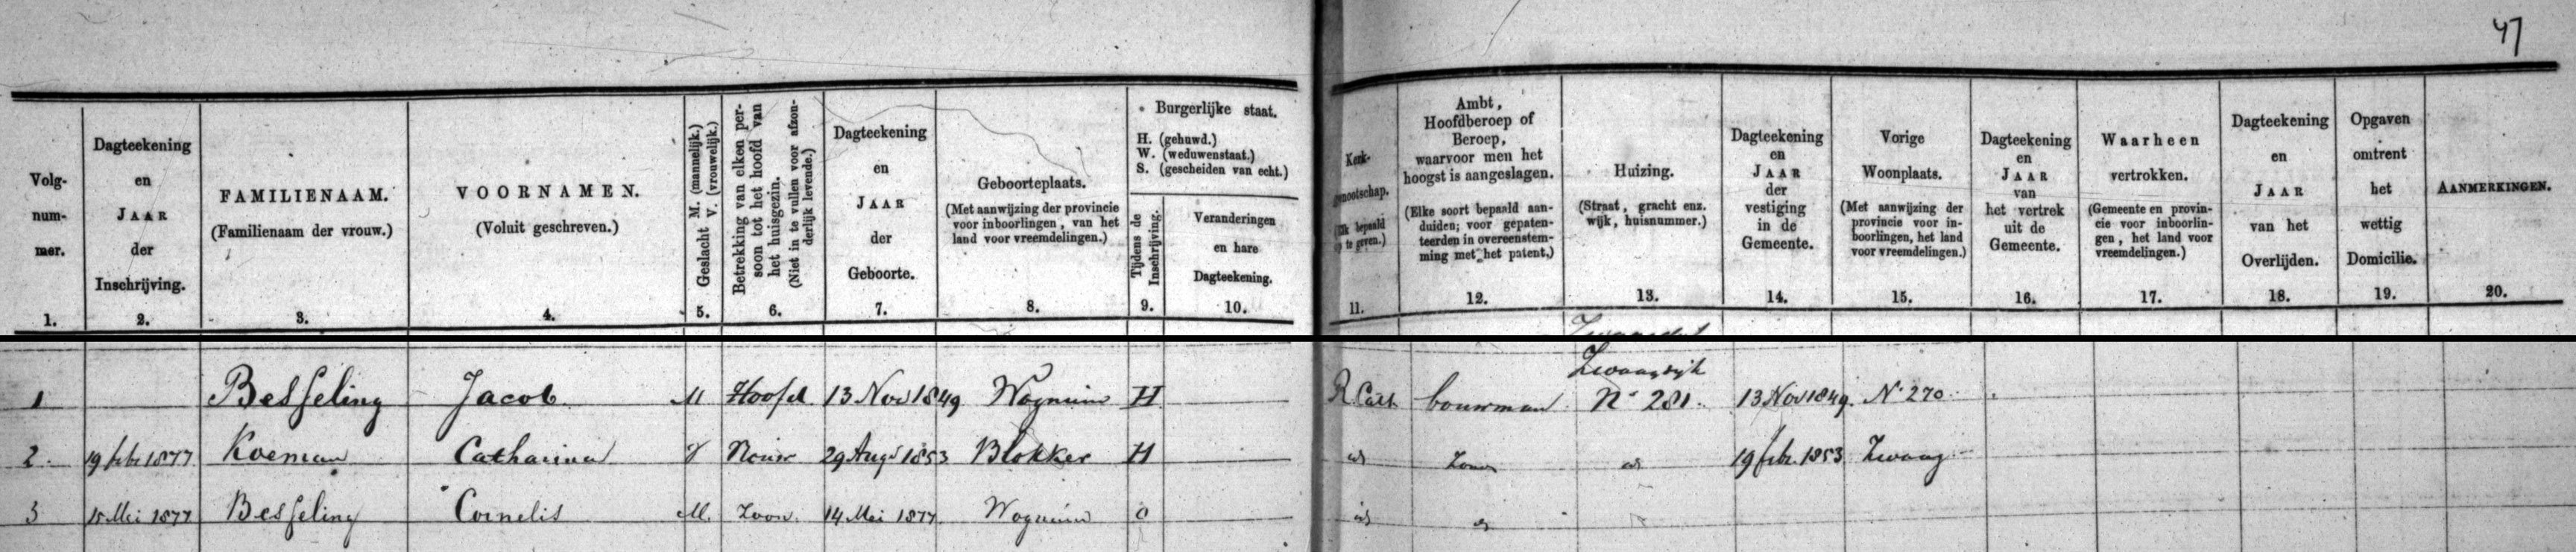 47
Volg-
num-
mer.
1.
Dagteekening
en
JAAR
der
Inschrijving.
2.
FAMILIENAAM.
(Familienaam der vrouw.)
3.
VOORNAMEN.
(Voluit geschreven.)
4.
Geslacht M. (mannelijk.)
V. (vrouwelijk.)
5.
Betrekking van elken per-
soon tot het hoofd van
het huisgezin.
(Niet in te vullen voor afzon-
derlijk levende.)
6.
Dagteekening
en
JAAR
der
Geboorte.
7.
Geboorteplaats.
(Met aanwijzing der provincie
voor inboorlingen, van het
land voor vreemdelingen.)
8.
Burgerlijke staat.
H. (gehuwd.)
W. (weduwenstaat.)
S. (gescheiden van echt.)
Tijdens de
Inschrijving.
9.
Veranderingen
en hare
Dagteekening.
10.
Kerk-
genootschap.
11.
Ambt,
Hoofdberoep of
Beroep,
waarvoor men het
hoogst is aangeslagen.
(Elke soort bepaald aan-
duiden; voor gepaten-
teerden in overeenstem-
ming met het patent,)
12.
Huizing.
(Straat, gracht enz.
wijk, huisnummer.)
13.
Dagteekening
en
JAAR
der
vestiging
in de
Gemeente.
14.
Vorige
Woonplaats.
(Met aanwijzing der
provincie voor in-
boorlingen, het land
voor vreemdelingen.)
15.
Dagteekening
en
JAAR
van
het vertrek
uit de
Gemeente.
16.
Waarheen
vertrokken.
(Gemeente en provin-
cie voor inboorlin-
gen, het land voor
vreemdelingen.)
17.
Dagteekening
en
JAAR
van het
Overlijden.
18.
Opgaven
omtrent
het
wettig
Domicilie.
19.
AANMERKINGEN.
20.
Zwaagdijk
1 Besseling Jacob M Hoofd 13 Nov 1849 Wognum H R. Cath bouwman No 281. 13 Nov 1849. No 270
2. 19 febr 1877 Koeman Catharina V 29 Aug 1853 Blokker H id id 19 febr. 1853 Zwaag
3 15 Mei 1877 Besseling Cornelis M. Zoon. 14 Mei 1877 Wognum O id